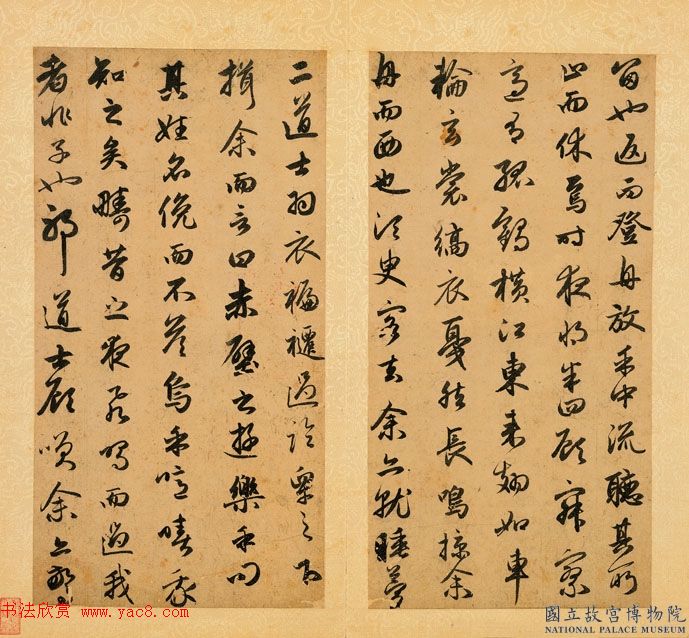 留也返而登舟放乎中流聽其所
止而休焉時夜將半四顧寂寥
適有孤鶴橫江東來翅如車
輪玄裳縞衣戛然長鳴掠余
舟而西也須臾客去余亦就睡夢
二道士羽衣褊褼過臨皋之下
揖余而言曰赤壁之遊樂乎問
其姓名俛而不答烏乎噫嘻我
知之矣疇昔之夜飛鳴而過我
者非子也耶道士顧笑余亦驚
书法欣赏 www.yac8.com
國立故宮博物院
NATIONAL PALACE MUSEUM